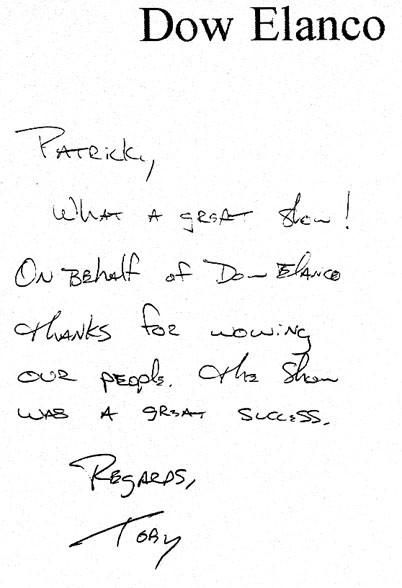 Dow Elanco
Patrick,
What a great show!
On Behalf of Dow Elanco
thanks for wowing
our people. The show
was a great success.
Regards,
Toby